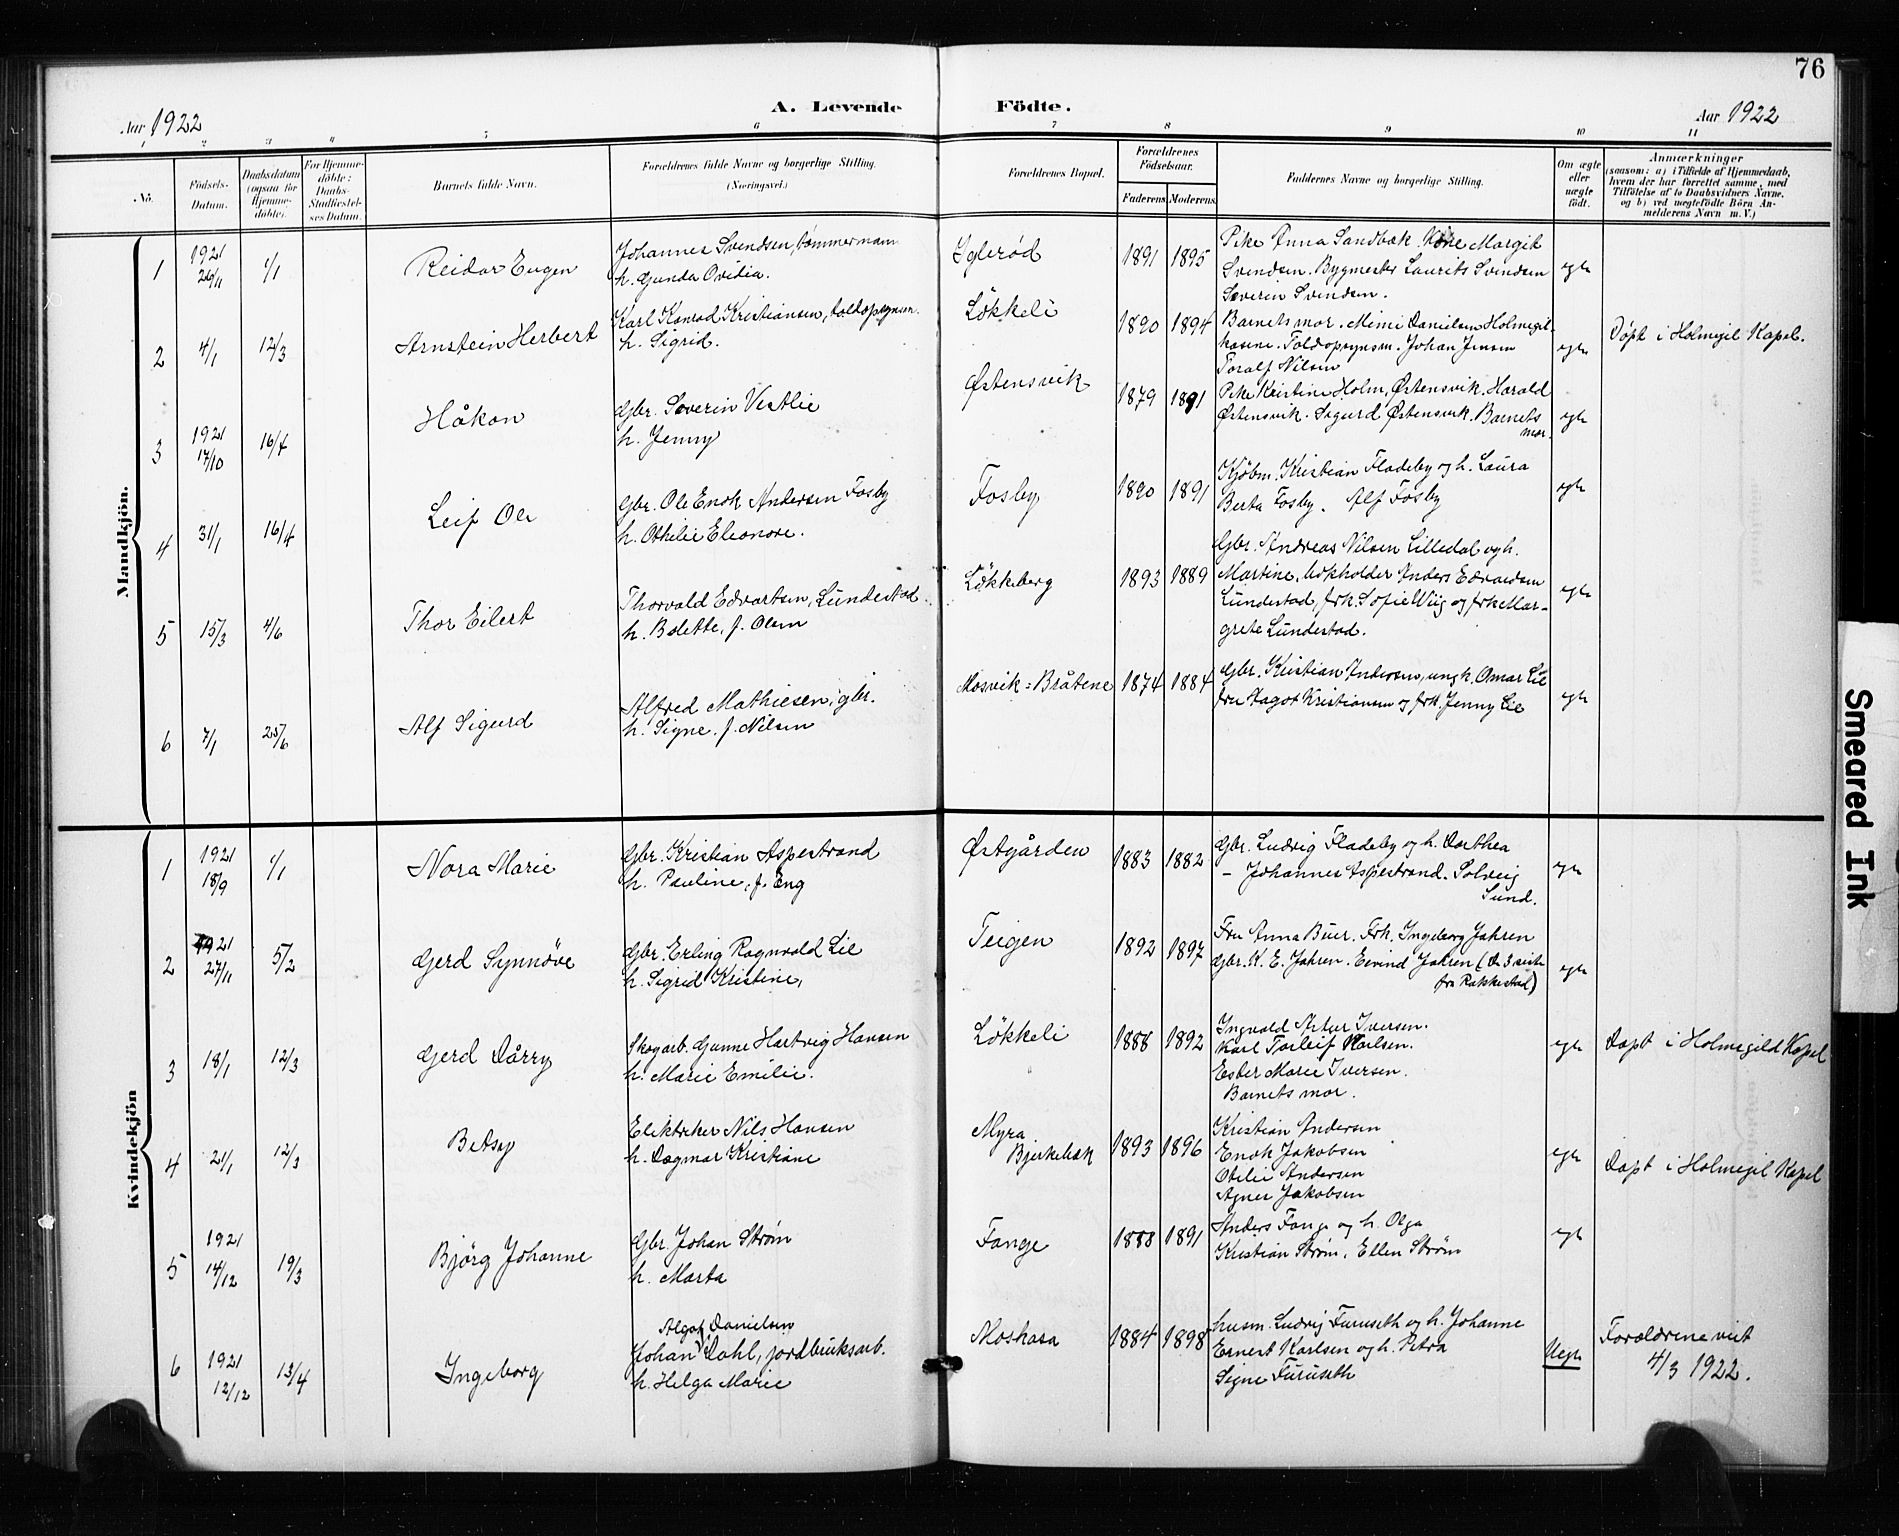 76
A. Levende Födte.
Aar 1922
Aar 1922
1 2 3 4 5 6 7 8 9 10 11
No.
Födsels-Datum.
Daabsdatum (ogsaa for Hjemmedöbte).
For Hjemmedöbte: Daabs-Stadfæstelses Datum.
Barnets fulde Navn.
Forældrenes fulde Navne og borgerlige Stilling.
(Næringsvei.)
Forældrenes Bopæl.
Forældrenes Födselsaar.
Faderens Moderens
Faddernes Navne og borgerlige Stilling.
Om ægte eller uægte født.
Anmærkninger
(saasom: a) i Tilfælde af Hjemmedaab, hvem der har forrettet samme, med Tilföielse af to Daabsvidners Navne, og b) ved uægtefödte Börn Anmelderens Navn m. V.)
Mandkjön.
1 1921 26/11 1/1 Reidar Eugen
Johannes Svendsen, tømmermann
h. Gunda Ovidia.
Iglerød 1891 1895
Pike Anna Sandbæk. Kone Margit
Svendsen. Bygmester Laurits Svendsen
Severin Svendsen.
egte
2 4/1 12/3 Arnstein Herbert
Karl Konrad Kristiansen, toldopsynsm.
h. Sigrid.
Lökkeli 1890 1894
Barnets mor. Mimi Danielsen Holmegil-
kasene. Toldopsynsm. Johan Jensen
Toralf Nilsen
egte
Döpt i Holmegil Kapel.
3 1921 17/10 16/4 Håkon
Gbr. Severin Vestlie
h. Jenny
Østensvik 1879 1891
Pike Kristine Holm, Østensvik. Harald
Østensvik. Sigurd Østensvik. Barnets
mor.
egte
4 31/1 16/4 Leif Ole
Gbr. Ole Enok Andersen Fosby
h. Othelie Eleonore.
Fosby 1890 1891
Kjöbm. Kristian Fladeby og h. Laura
Berta Fosby. Alf Fosby
egte
5 15/3 4/6 Thor Eilert
Thorvald Edvartsen, Lundestad.
h. Bolette, f. Olsen
Lökkeberg 1893 1889
Gbr. Andreas Nilsen Lilledal og h.
Martine, bokholder Anders Edvardsen
Lundestad, frk. Sofie Wiig og frk Mar-
grete Lundestad.
egte
6 7/1 25/6 Alf Sigurd
Alfred Mathiesen, gbr.
h. Signe. f. Nilsen
Mosvik: Bråtene 1874 1884
Gbr. Kristian Andersen, ungk. Omar Lie
fru Hagot Kristiansen og frk. Jenny Lie
egte
Kvindekjön
1 1921 18/9 1/1 Nora Marie
Gbr. Kristian Aspestrand
h. Pauline, f. Eng
Østgården 1883 1882
Gbr. Ludvig Fladeby og h. Dorthea
- Johannes Aspestrand. Solveig
Sund.
egte
2 1921 27/11 5/2 Gerd Synnöve
Gbr. Erling Ragnvald Lie
h. Sigrid Kristine,
Teigen 1892 1897
Fru Anna Buer. Frk. Ingeborg Jahren
Gbr. K. E. Jahren. Eivind Jahren (De 3 siste
fra Rakkestad)
egte
3 18/1 12/3 Gerd Dårry
Skogarb. Gunne Hartvig Hansen
h. Marie Emilie.
Lökkeli 1888 1892
Ingvald Artur Iversen.
Karl Torleif Karlsen.
Ester Marie Iversen.
Barnets mor.
egte
Döpt i Holmegild Kapel
4 21/1 12/3 Betsy
Elektriker Nils Hansen
h. Dagmar Kristiane
Myra
Bjerkebæk 1893 1896
Kristian Andersen
Enok Jakobsen
Otelie Andersen
Agnes Jakobsen
egte
Döpt i Holmegil Kapel
5 1921 14/12 19/3 Bjørg Johanne
Gbr. Johan Strøm
h. Marta
Fange 1888 1891
Anders Fange og h. Olga
Kristian Strøm, Ellen Strøm
egte
6 1921 12/12 13/4 Ingeborg
Algot Danielsen
Johan Dahl, jordbruksarb.
h. Helga Marie
Moskasa 1884 1898
husm. Ludvig Furuseth og h. Johanne
Ernest Karlsen og h. Petra
Signe Furuseth
Uegte
Forældrene viet
4/3 1922.
Smeared Ink